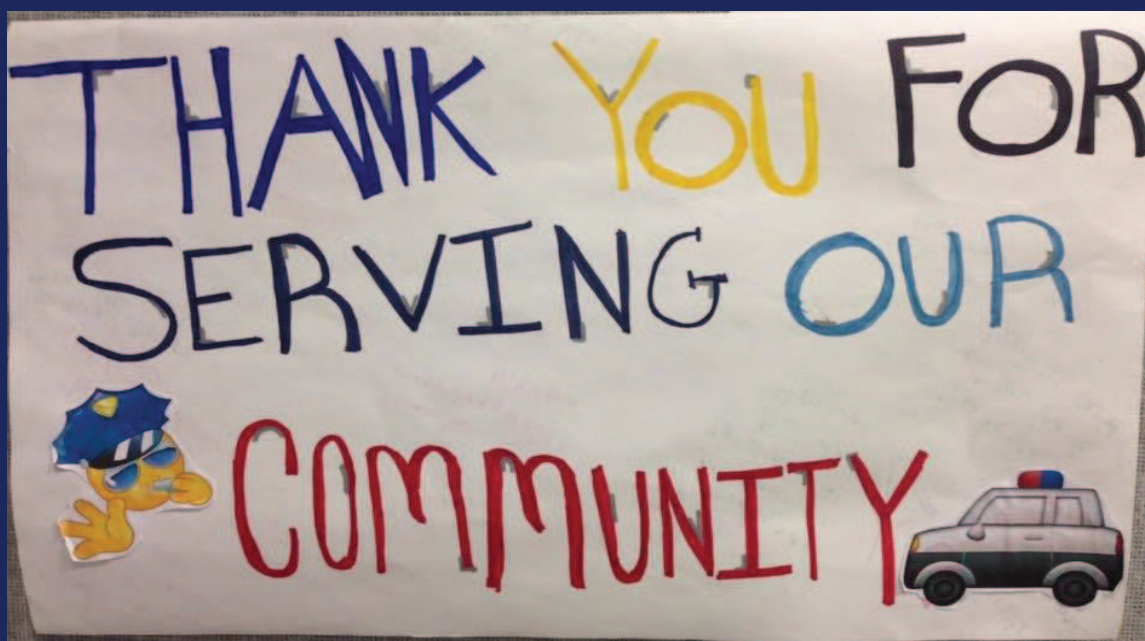 THANK YOU FOR
SERVING OUR
COMMUNITY